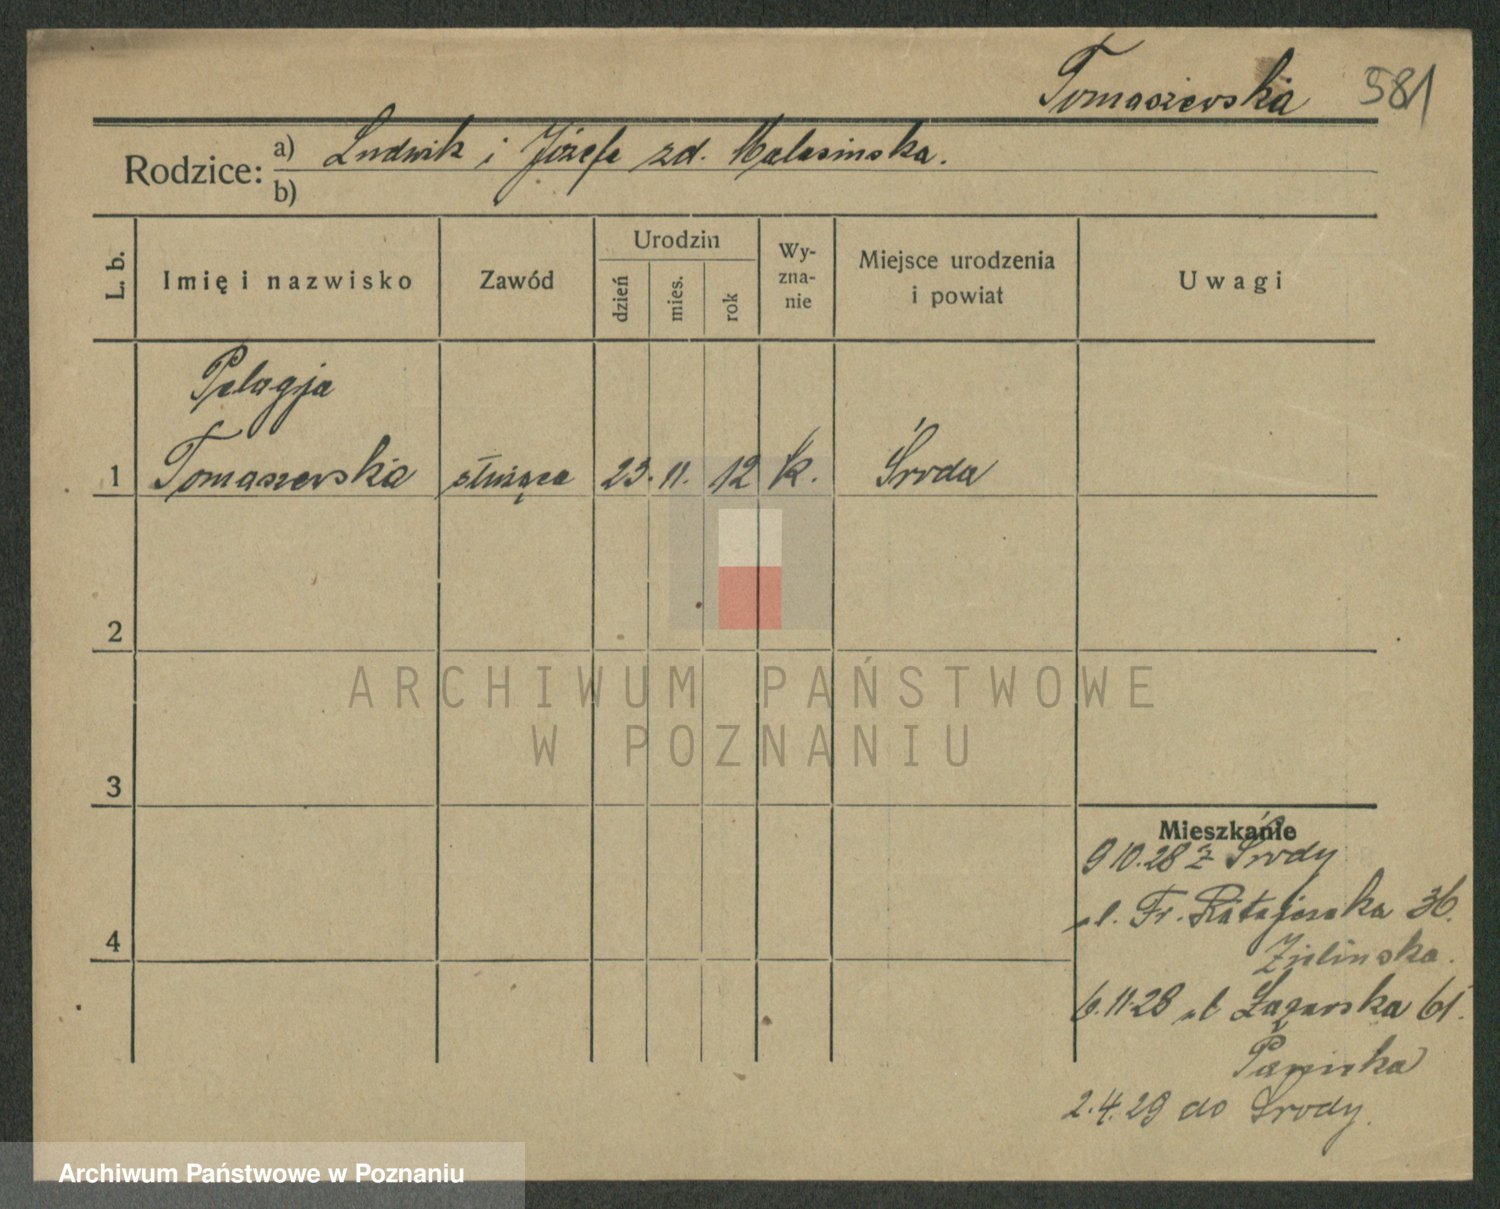 Tomaszewska 581
Rodzice: a) Ludwik i Józefa zd. Malasinska.
b)
L. b.
Imię i nazwisko
Zawód
Urodzin
dzień
mies.
rok
Wy-
zna-
nie
Miejsce urodzenia
i powiat
Uwagi
Pelagja
1 Tomaszewska służąca 23. 11. 12 k. Środa
2
ARCHIWUM PAŃSTWOWE
W POZNANIU
3
Mieszkanie
9 10.28 z Środy
ul. Fr. Ratajczaka 36.
4
Zielinska.
6.11.28 ul Łazarska
2.4.29 do Środy.
Archiwum Państwowe w Poznaniu